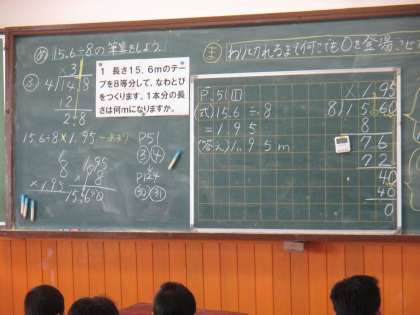 め 15.6÷8の筆算をしよう!
ふ
×3
4)14.8
12
2.8
15.6÷8 × 1.95
1.95
× 8
× 1.95
15.600
P51
③④
P124
㉚㉛
1 長さ15.6mのテープを8等分して、なわとびをつくります。1本分の長さは何mになりますか。
ま わりきれるまで何こでも0を登場させ
P.51 1
(式)15.6÷8
=1.95
(答え)1.95m
1.95
8)15.60
8
76
72
40
40
0